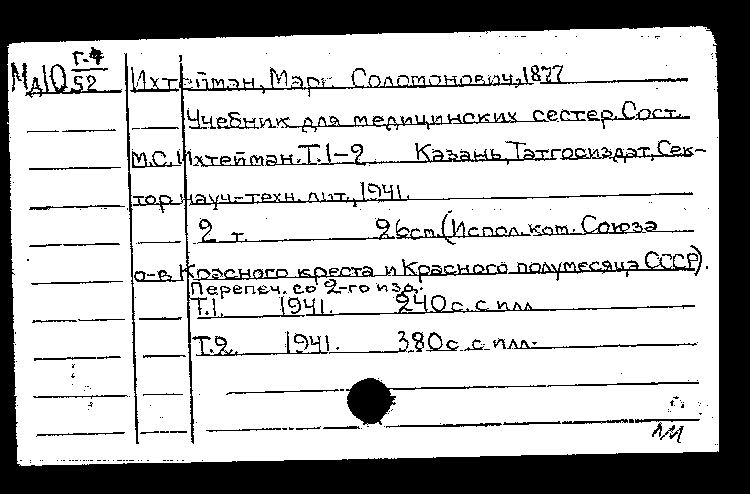 Мд10 Г-4/52 Ихтейман, Марк Соломонович, 1877
Учебник для медицинских сестер. Сост.
М.С. Ихтейман. Т. 1-2 Казань, Татгосиздат, Сек-
тор науч.-техн. лит., 1941.
2 т. 26 см. (Испол. ком. Союза
о-в Красного креста и Красного полумесяца СССР).
Перепеч. со 2-го изд.
Т.1. 1941. 240 с. с илл
Т.2. 1941. 380 с. с илл.